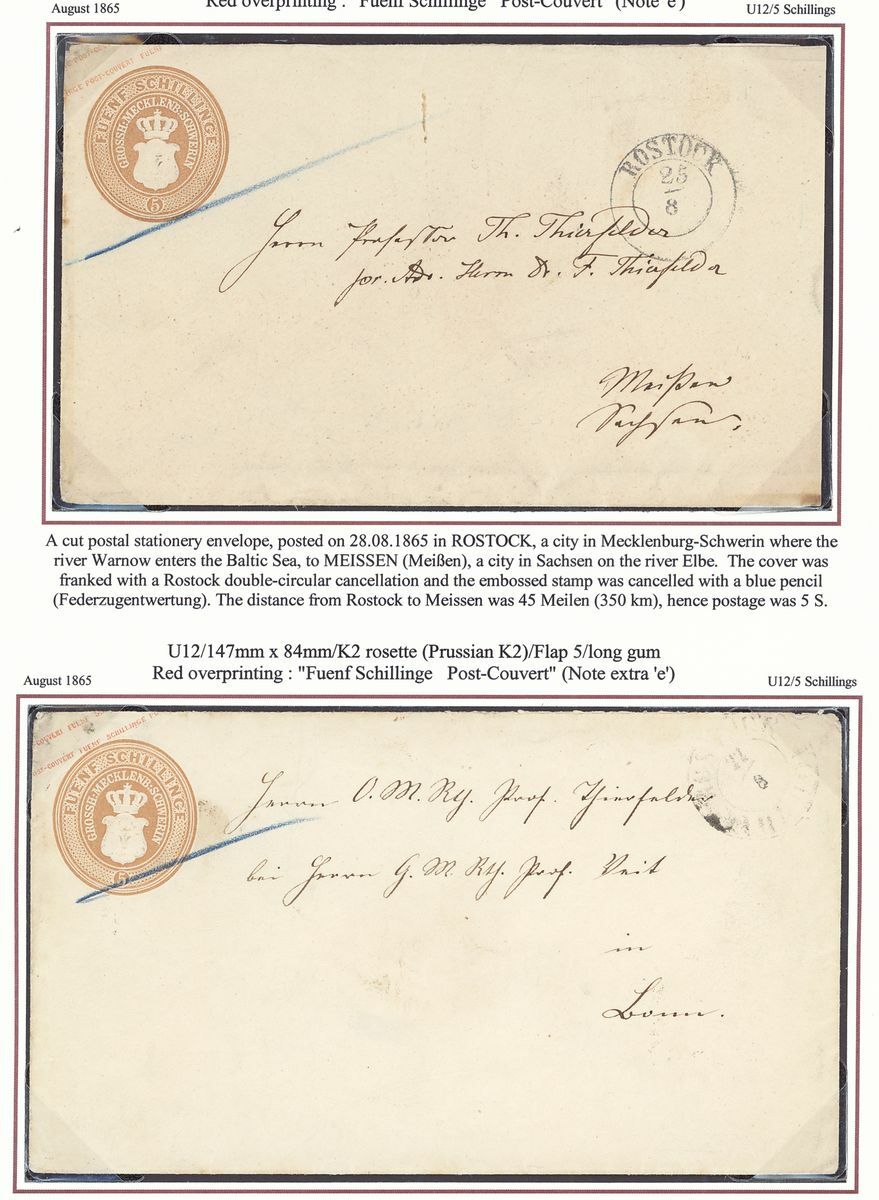 August 1865
Red overprinting : "Fuenf Schillinge Post-Couvert" (Note 'e')
U12/5 Schillings
NGE POST-COUVERT FUENF
FUENF SCHILLINGE
GROSSH. MECKLENB. SCHWERIN
5
ROSTOCK
25
8
Herrn Professor Th. Thierfelder
Herrn Dr. F. Thierfelder
Meißen
Sachsen.
A cut postal stationery envelope, posted on 28.08.1865 in ROSTOCK, a city in Mecklenburg-Schwerin where the
river Warnow enters the Baltic Sea, to MEISSEN (Meißen), a city in Sachsen on the river Elbe. The cover was
franked with a Rostock double-circular cancellation and the embossed stamp was cancelled with a blue pencil
(Federzugentwertung). The distance from Rostock to Meissen was 45 Meilen (350 km), hence postage was 5 S.
U12/147mm x 84mm/K2 rosette (Prussian K2)/Flap 5/long gum
Red overprinting : "Fuenf Schillinge Post-Couvert" (Note extra 'e')
August 1865
U12/5 Schillings
COUVERT FUENF
POST-COUVERT FUENF SCHILLINGE PO
FUENF SCHILLINGE
GROSSH. MECKLENB. SCHWERIN
5
8
Herrn O. M. Rth. Prof. Thierfelder
bei Herrn G. M. Rth. Prof. Veit
in
Bonn.